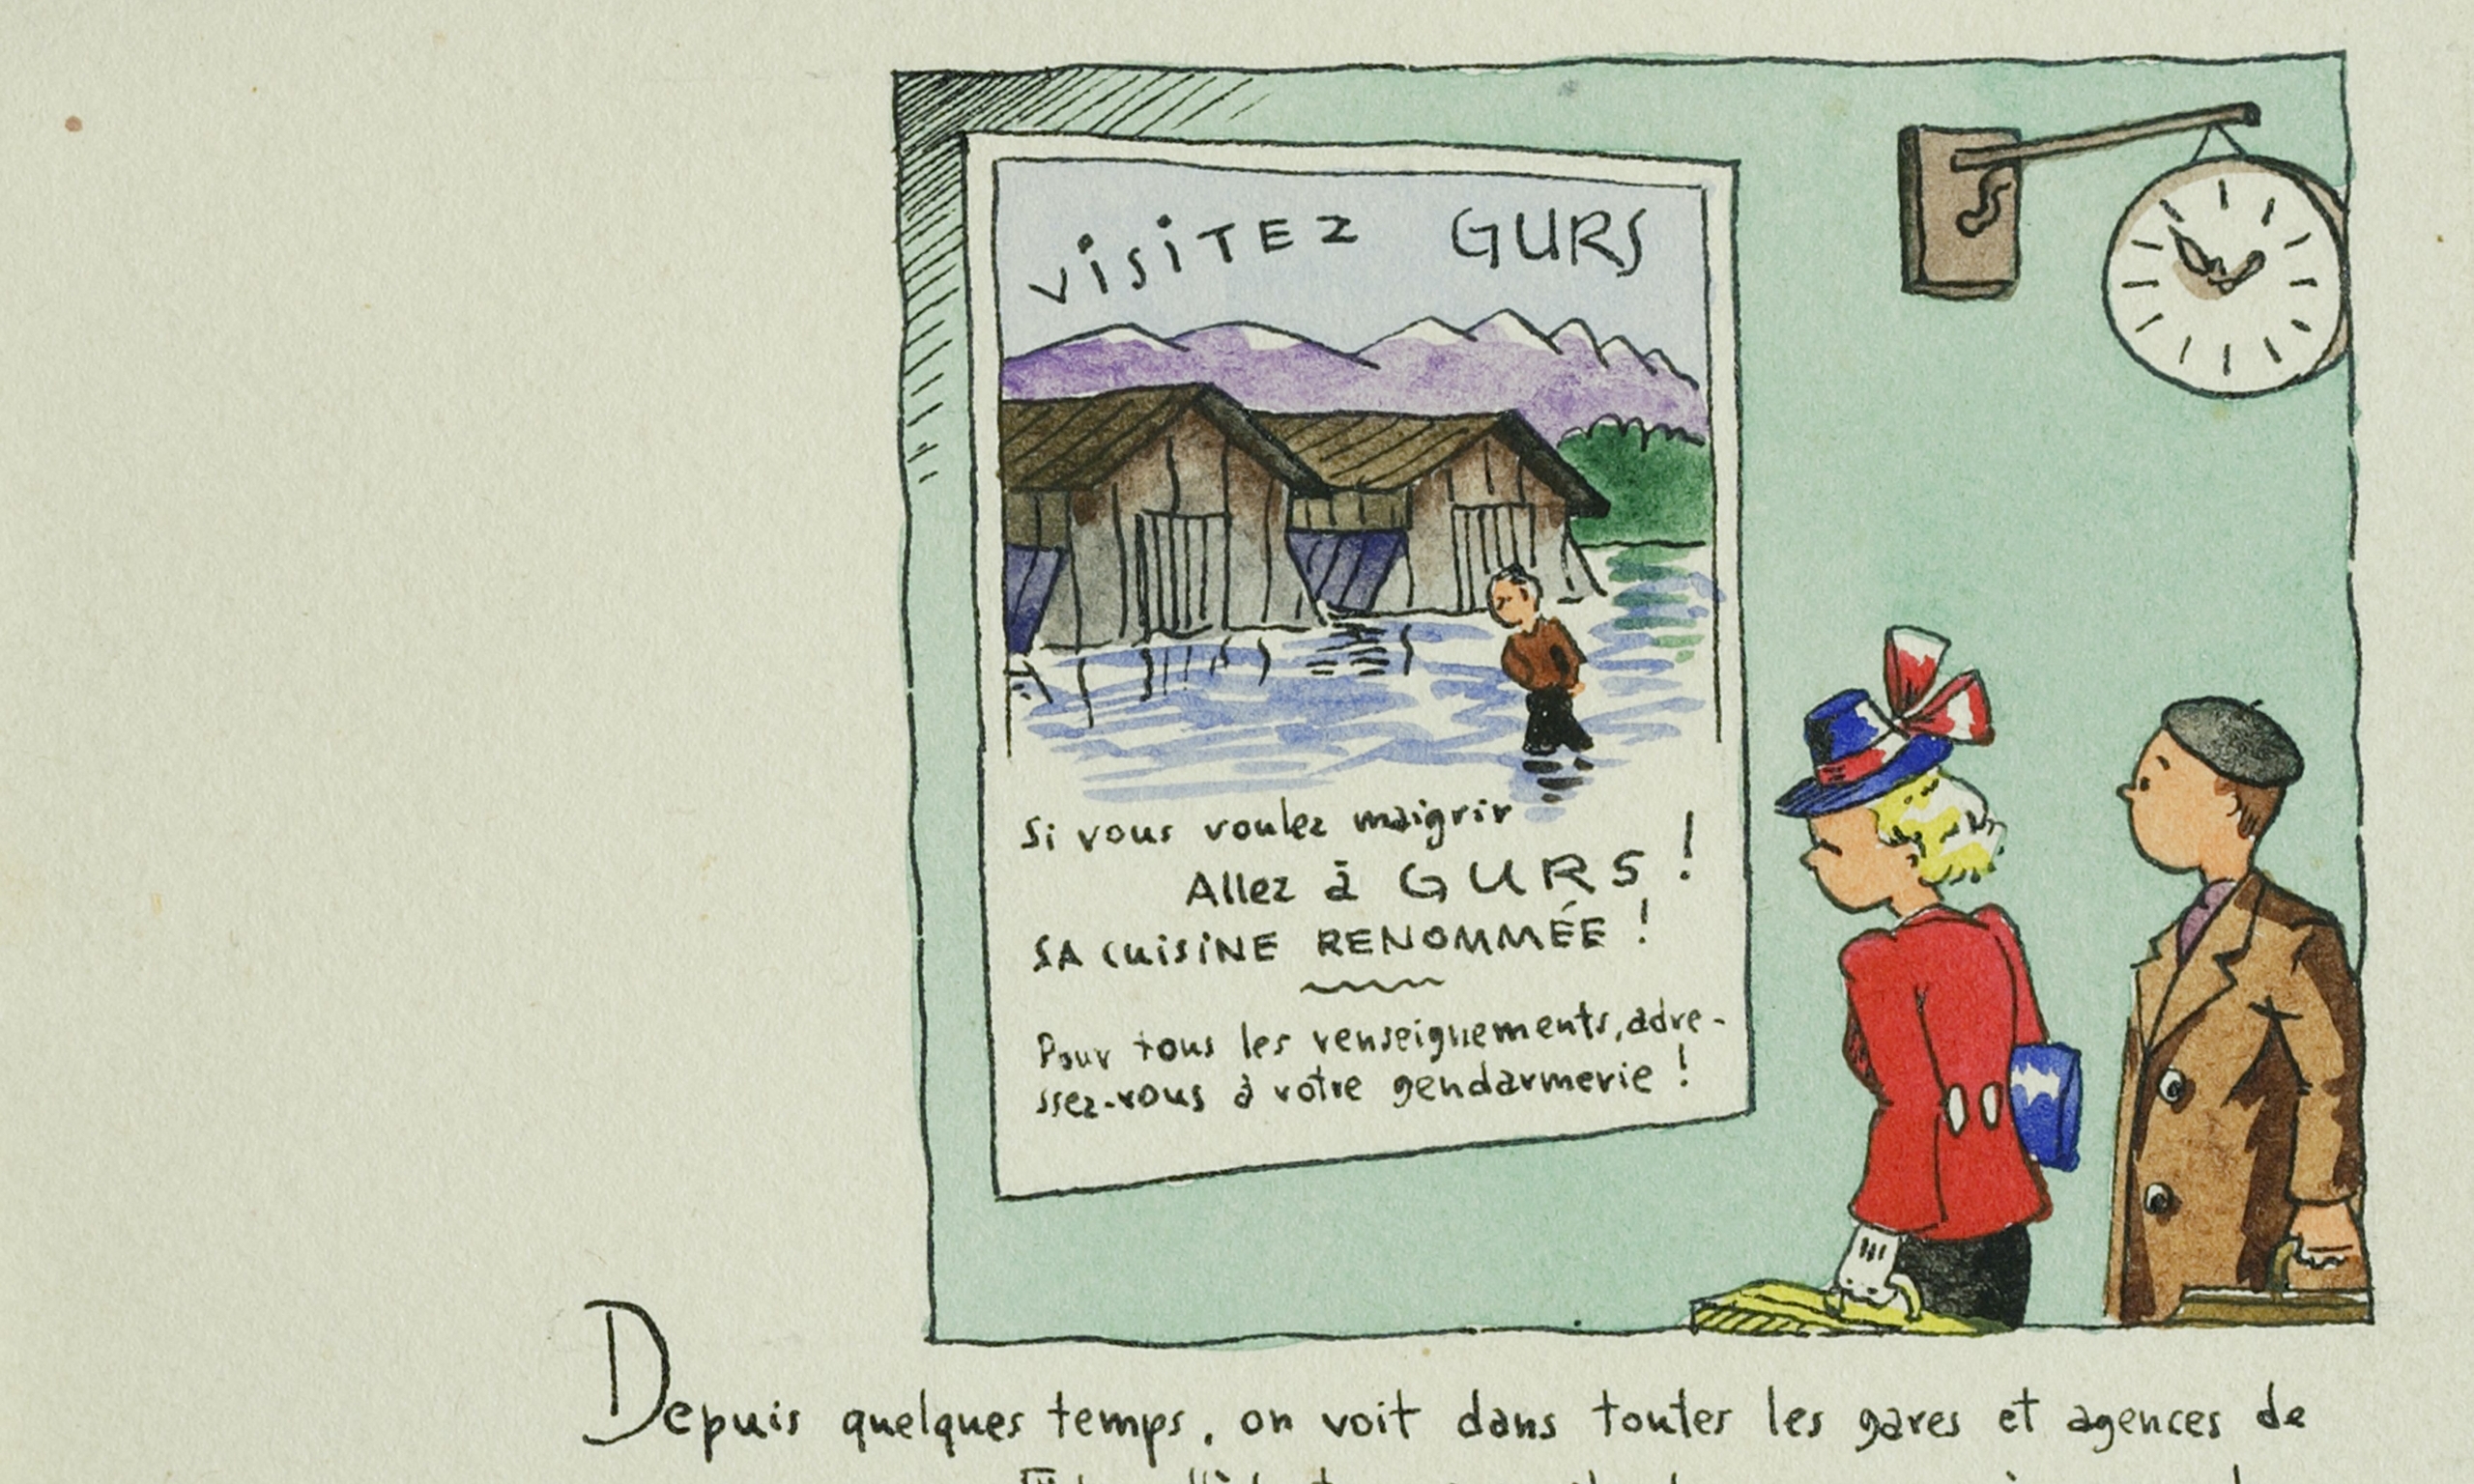 ViSiTEZ GURS
Si vous voulez maigrir
Allez à GURS !
SA CUiSiNE RENOMMÉE !
Pour tous les renseignements, adre-
ssez-vous à votre gendarmerie !
Depuis quelques temps, on voit dans toutes les gares et agences de